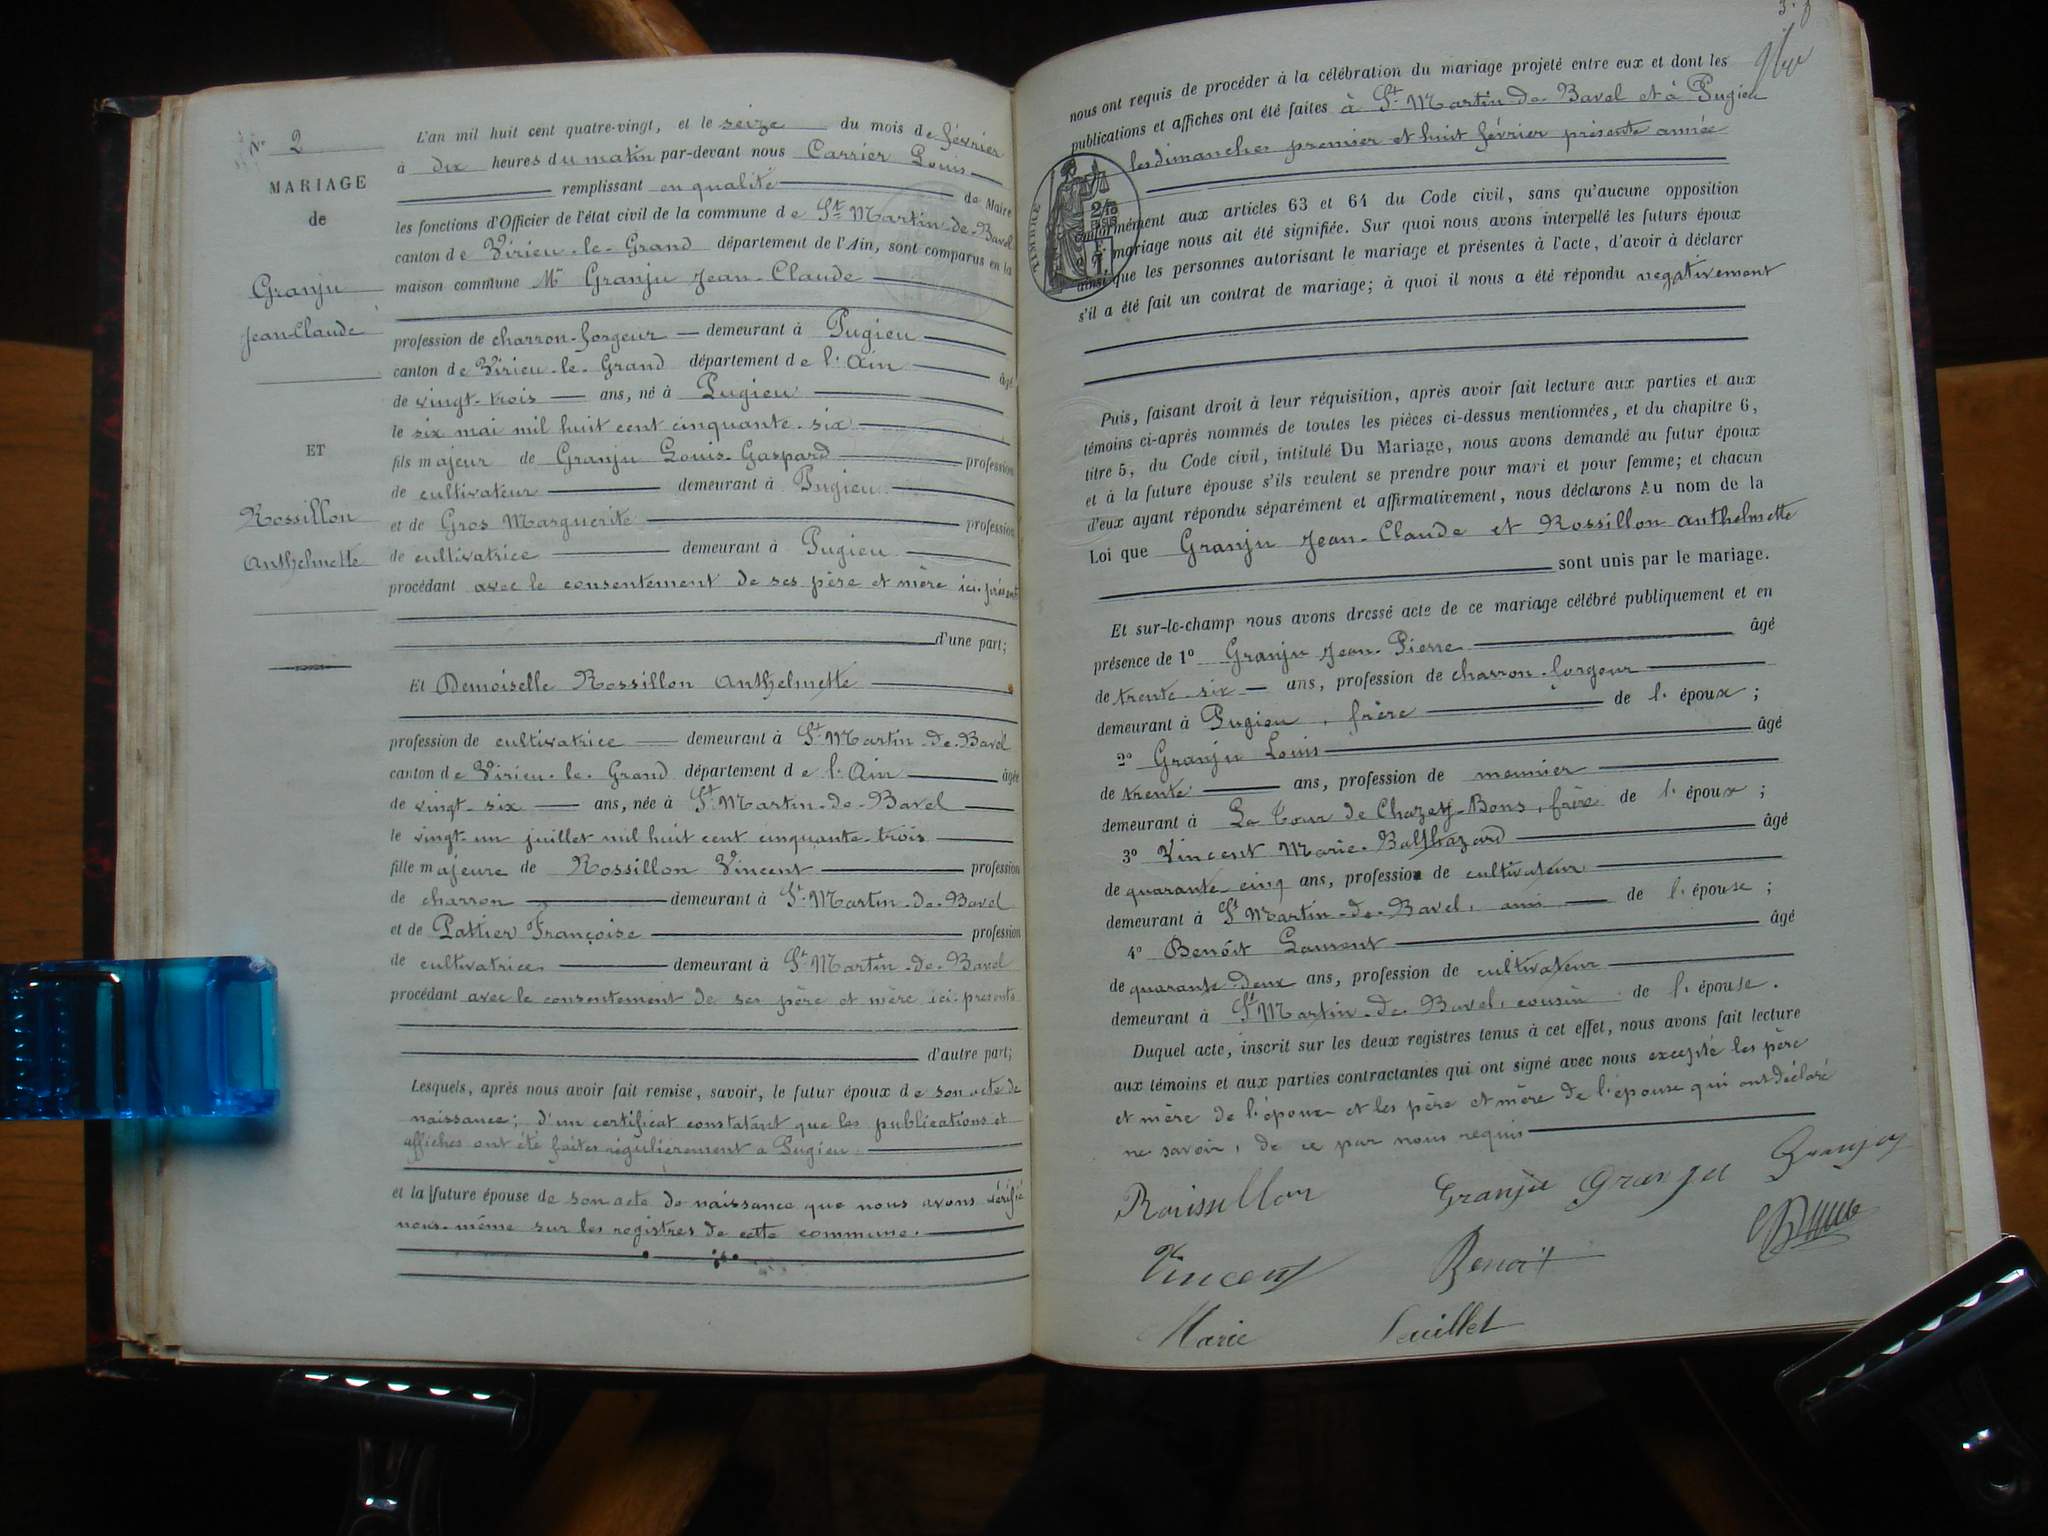 N° 2
MARIAGE
de
Granju
Jean-Claude
ET
Rossillon
Anthelmette
L'an mil huit cent quatre-vingt, et le seize du mois de février
à dix heures du matin par-devant nous Carrier Louis
remplissant en qualité de Maire
les fonctions d'Officier de l'état civil de la commune de St Martin-de-Bavel
canton de Virieu-le-Grand département de l'Ain, sont comparus en la
maison commune Mr Granju Jean-Claude
profession de charron-forgeur demeurant à Pugieu
canton de Virieu-le-Grand département de l'Ain âgé
de vingt-trois ans, né à Pugieu
le six mai mil huit cent cinquante-six
fils majeur de Granju Louis-Gaspard profession
de cultivateur demeurant à Pugieu
et de Gros Marguerite profession
de cultivatrice demeurant à Pugieu
procédant avec le consentement de ses père et mère ici-présents
d'une part;
Et Demoiselle Rossillon Anthelmette
profession de cultivatrice demeurant à St Martin-de-Bavel
canton de Virieu-le-Grand département de l'Ain âgée
de vingt-six ans, née à St Martin-de-Bavel
le vingt-un juillet mil huit cent cinquante-trois
fille majeure de Rossillon Vincent profession
de charron demeurant à St Martin-de-Bavel
et de Pattier Françoise profession
de cultivatrice demeurant à St Martin-de-Bavel
procédant avec le consentement de ses père et mère ici-présents
d'autre part;
Lesquels, après nous avoir fait remise, savoir, le futur époux de son acte de
naissance; d'un certificat constatant que les publications et
affiches ont été faites régulièrement à Pugieu
et la future épouse de son acte de naissance que nous avons vérifié
nous-même sur les registres de cette commune.
nous ont requis de procéder à la célébration du mariage projeté entre eux et dont les
publications et affiches ont été faites à St Martin-de-Bavel et à Pugieu
les dimanches premier et huit février présente année
TIMBRE
2/10
EN SUS
conformément aux articles 63 et 64 du Code civil, sans qu'aucune opposition
à ce mariage nous ait été signifiée. Sur quoi nous avons interpellé les futurs époux
ainsi que les personnes autorisant le mariage et présentes à l'acte, d'avoir à déclarer
s'il a été fait un contrat de mariage; à quoi il nous a été répondu négativement
Puis, faisant droit à leur réquisition, après avoir fait lecture aux parties et aux
témoins ci-après nommés de toutes les pièces ci-dessus mentionnées, et du chapitre 6,
titre 5, du Code civil, intitulé Du Mariage, nous avons demandé au futur époux
et à la future épouse s'ils veulent se prendre pour mari et pour femme; et chacun
d'eux ayant répondu séparément et affirmativement, nous déclarons Au nom de la
Loi que Granju Jean-Claude et Rossillon Anthelmette
sont unis par le mariage.
Et sur-le-champ nous avons dressé acte de ce mariage célébré publiquement et en
présence de 1° Granju Jean-Pierre âgé
de trente-six ans, profession de charron-forgeur
demeurant à Pugieu, frère de l'époux;
2° Granju Louis âgé
de trente ans, profession de meunier
demeurant à La Tour de Chazey-Bons, frère de l'époux;
3° Vincent Marie-Balthazard âgé
de quarante-cinq ans, profession de cultivateur
demeurant à St Martin-de-Bavel, ami de l'épouse;
4° Benoît Laurent âgé
de quarante-deux ans, profession de cultivateur
demeurant à St Martin-de-Bavel, cousin de l'épouse.
Duquel acte, inscrit sur les deux registres tenus à cet effet, nous avons fait lecture
aux témoins et aux parties contractantes qui ont signé avec nous excepté les père
et mère de l'époux et les père et mère de l'épouse qui ont déclaré
ne savoir, de ce par nous requis
Roussillon Granju Granju Granju
Vincent Benoit
Marie